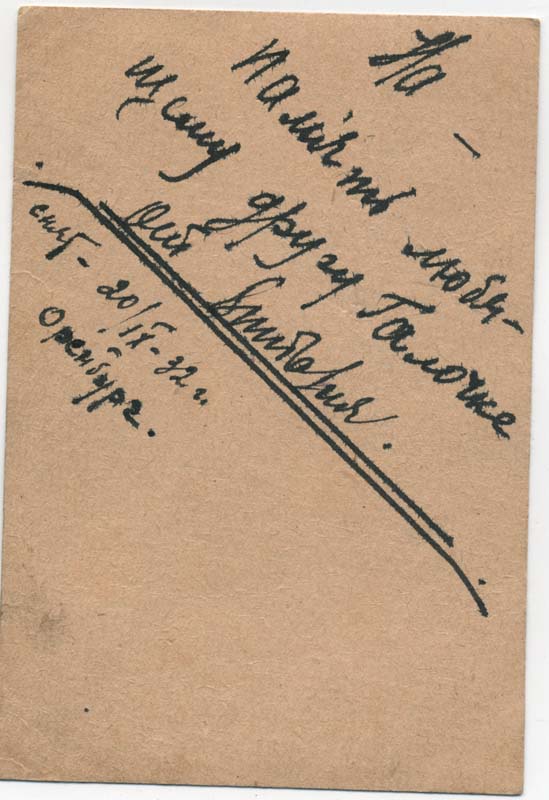 На -
память любя-
щему другу Галочке
от Виталия.
снят- 20/IX-32 г.
Оренбург.